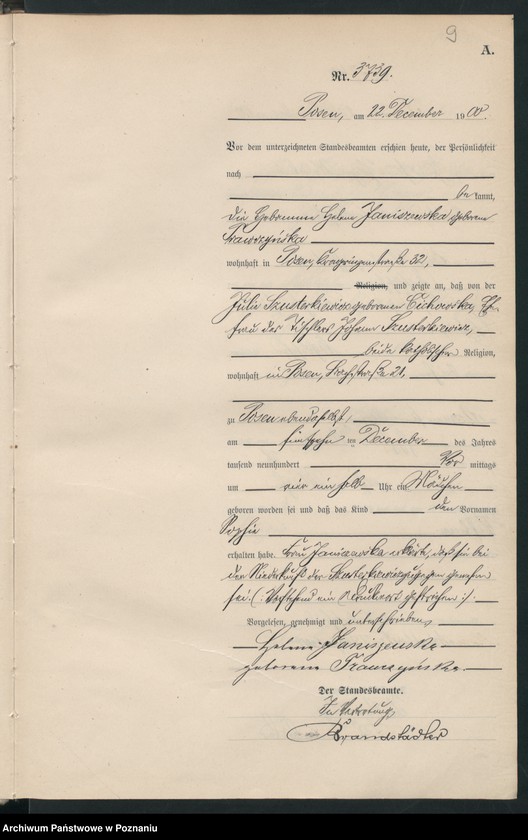 9
A.
Nr. 3739.
Posen, am 22. December 1900.
Vor dem unterzeichneten Standesbeamten erschien heute, der Persönlichkeit
nach
bekannt,
die Hebamme Helene Janiszewska geborene
wohnhaft in Posen, Kronprinzenstraße 32,
Religion, und zeigte an, daß von der
Julie Szusterkiewicz geborenen Cichowska, Ehe-
frau des Tischlers Johann Szusterkiewicz,
beide katholischer Religion,
wohnhaft in Posen, 21,
zu Posen ebendaselbst,
am fünfzehn ten December des Jahres
tausend neunhundert Vor mittags
um ein halb Uhr ein Mädchen
geboren worden sei und daß das Kind den Vornamen
Sophie
erhalten habe. Frau Janiszewska erklärte, daß sie bei
der Niederkunft der Szusterkiewicz zugegen gewesen
sei. (: Vorstehend ein Druckwort gestrichen :).
Vorgelesen, genehmigt und unterschrieben
Helene Janiszewska
geborene
Der Standesbeamte.
In Vertretung
Brandstädter
Archiwum Państwowe w Poznaniu